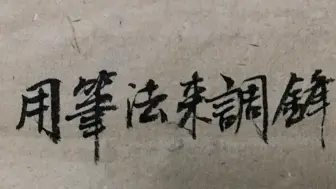 用筆法来調鋒